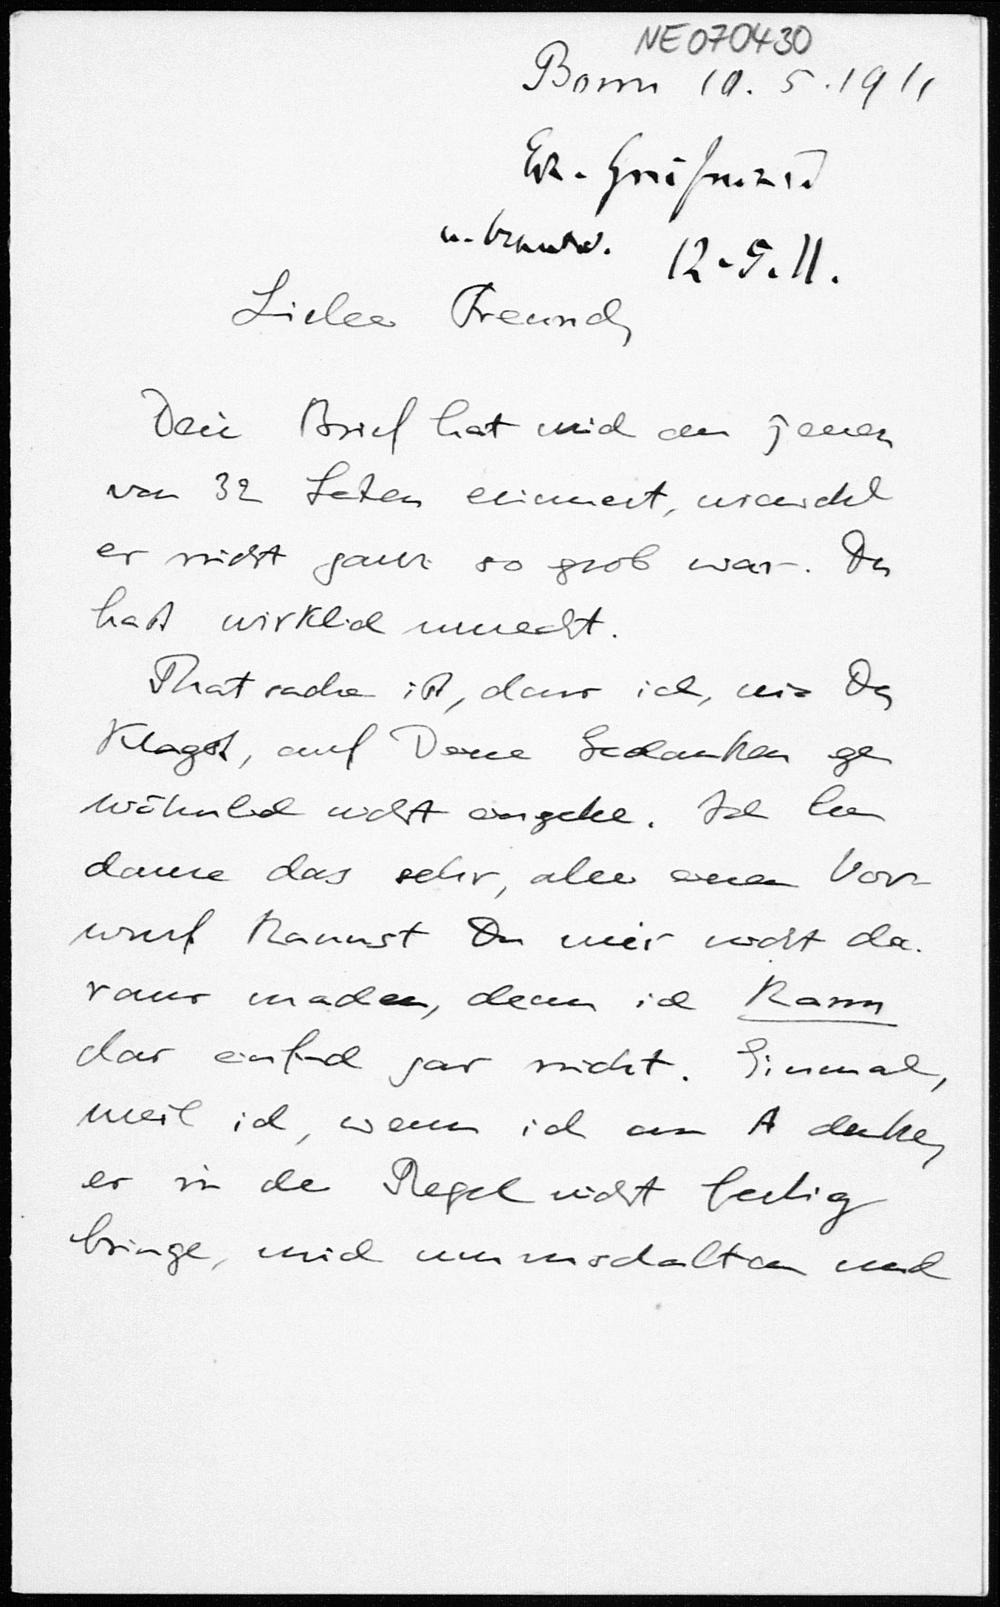 NE070430
Bonn 10. 5. 1911
Erh. Greifswald
u. beantw. 12.5.11.
Lieber Freund,
Dein Brief hat mich an jenen
von 32 Seiten erinnert, wiewohl
er nicht ganz so grob war. Du
hast wirklich unrecht.
Thatsache ist, dass ich, wie Du
klagst, auf Deine Gedanken ge
wöhnlich nicht eingehe. Ich be
daure das sehr, aber einen Vor-
wurf kannst Du mir nicht da-
raus machen, denn ich kann
das einfach gar nicht. Einmal,
weil ich, wenn ich an A denke,
es in der Regel nicht fertig
bringe, mich umzuschalten und